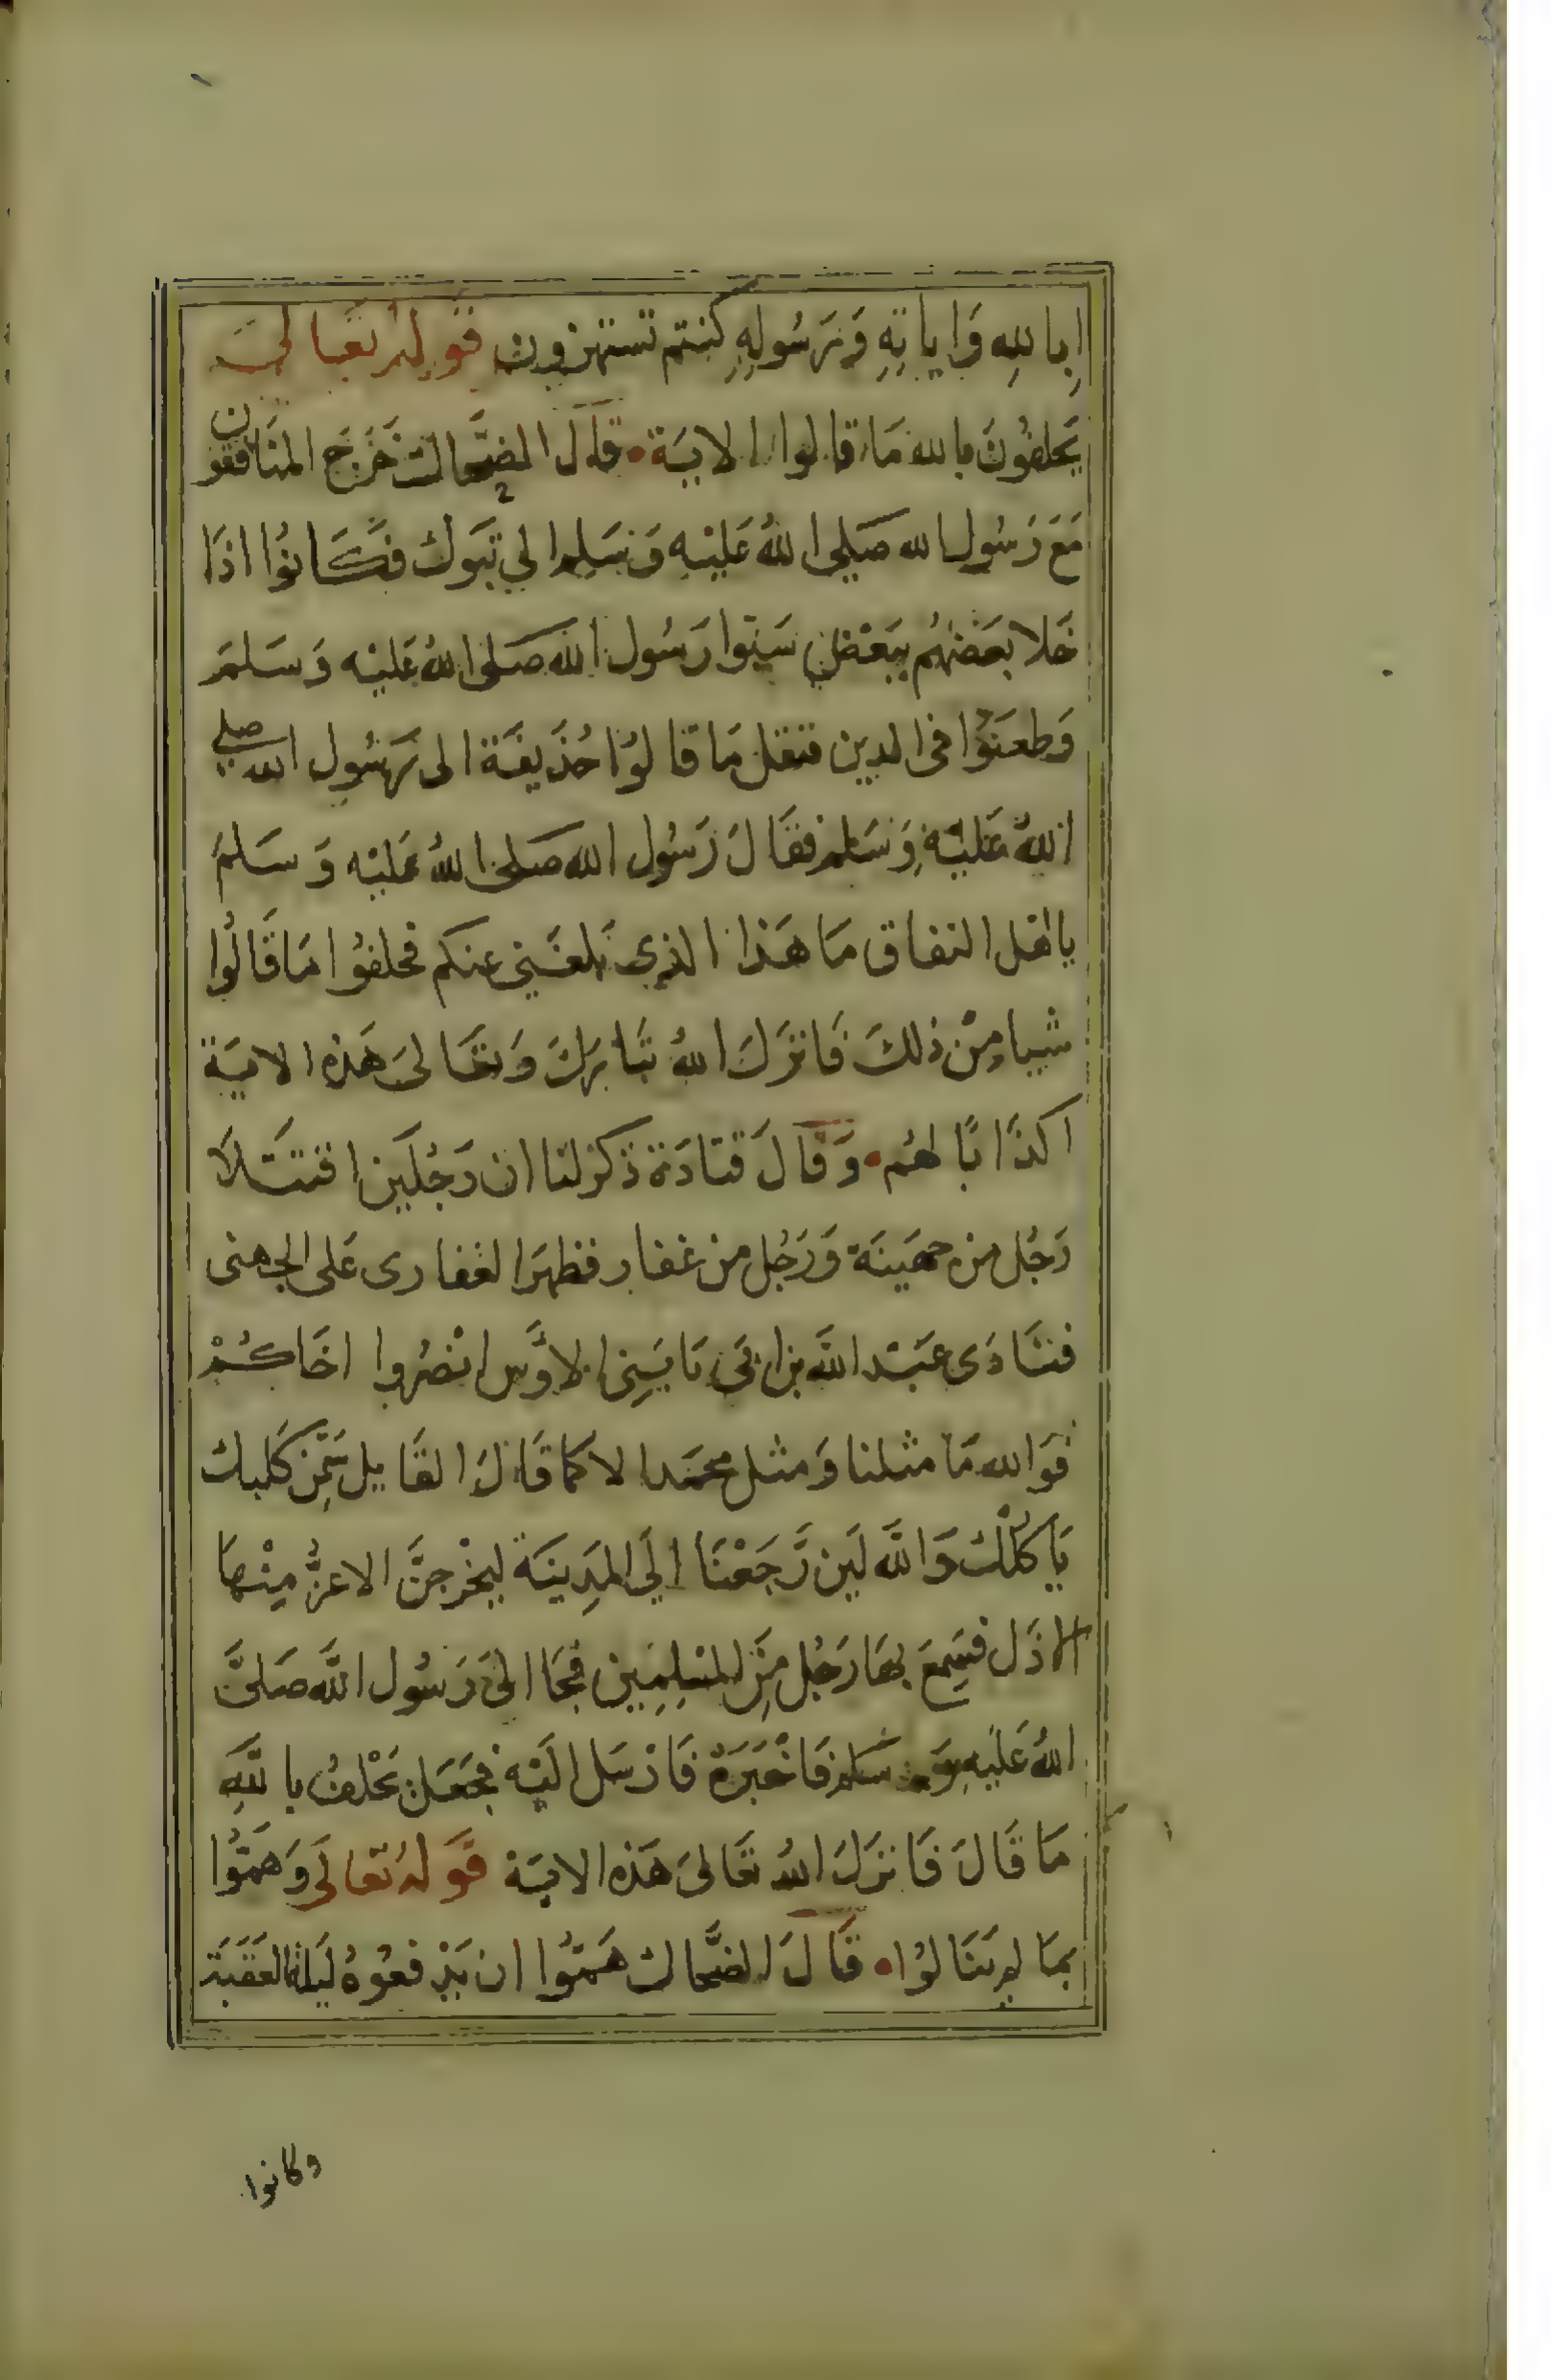 ابِاللهِ وَاياتِهِ وَرَسُولِهِ كنتم تستهزون قوله تعالى
يَحلفُونَ بالله مَا قالوا الاية قال الضحاك خَرَجَ المنَافقون
مَعَ رَسُول الله صَلى اللهُ عَليْهِ وَسَلم الى تبوَك فكَانوُا اذَا
خَلا بعَضهُم ببَعْض سَبّوا رَسُول الله صَلى اللهُ عَليْه وَسَلمَ
وَطعَنوُا فى الدين فنقل مَا قالوُا حُذَيفَة الى رَسُول الله صلى
اللهُ عَليْهِ وَسَلم فقَالَ رَسُول الله صَلى اللهُ عَليْه وَسَلمَ
يا اهْل النفاق مَا هَذا الذى بَلغَنى عنكم فحلفوُا مَا قَالوُا
شيا مِنْ ذلكَ فَانزَلَ اللهُ تبَاركَ وَتعَالىَ هَذه الايَة
اكذَابًا لهُم وَقَالَ قتادَة ذكر لنا ان رَجُلَين اقتتَلا
رَجُل من جهَينَة وَرَجُل من غفار فظهرَ الغفارى عَلى الجهنى
فنَادَى عبَد الله بن ابى يَا بَنِى الاوَّس انصُروا اخَاكُمْ
فَوَالله مَا مثلنا وَمثل محمَد الا كما قَالَ القَايل سَمّن كَلبك
يَاكلُكْ وَاللَّه لَين رَّجَعْنَا الَى المَدِينَة ليخْرجنَّ الاعزُّ مِنْهَا
الاذَل فسَمِعَ بهَا رَجُل مِّنَ المسْلِمِين فجَا الىَ رَسُول اللَّه صَلىَّ
اللهُ عَليْهِ وَسَلم فَاخْبَرَهُ فَارْسَل الَيْه فجَعَل يَحْلفُ باللَّهِ
مَا قَالَ فَانزَلَ اللهُ تعَالىَ هَذه الايَة قَوَلهُ تعالَى وَهَمُّوا
بمَا لم يَنَالوُا قَالَ الضَّحاك هَمّوُا ان يَدْفعوُهُ ليَلة العَقَبَة
وكانوا